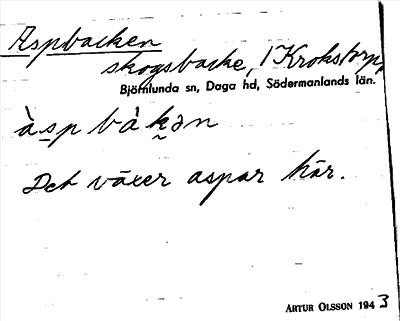 Aspbacken
skogsbacke, 1 Krokstorp,
Björnlunda sn, Daga hd, Södermanlands län.
àspbàkən
Det växer aspar här.
ARTUR OLSSON 1943